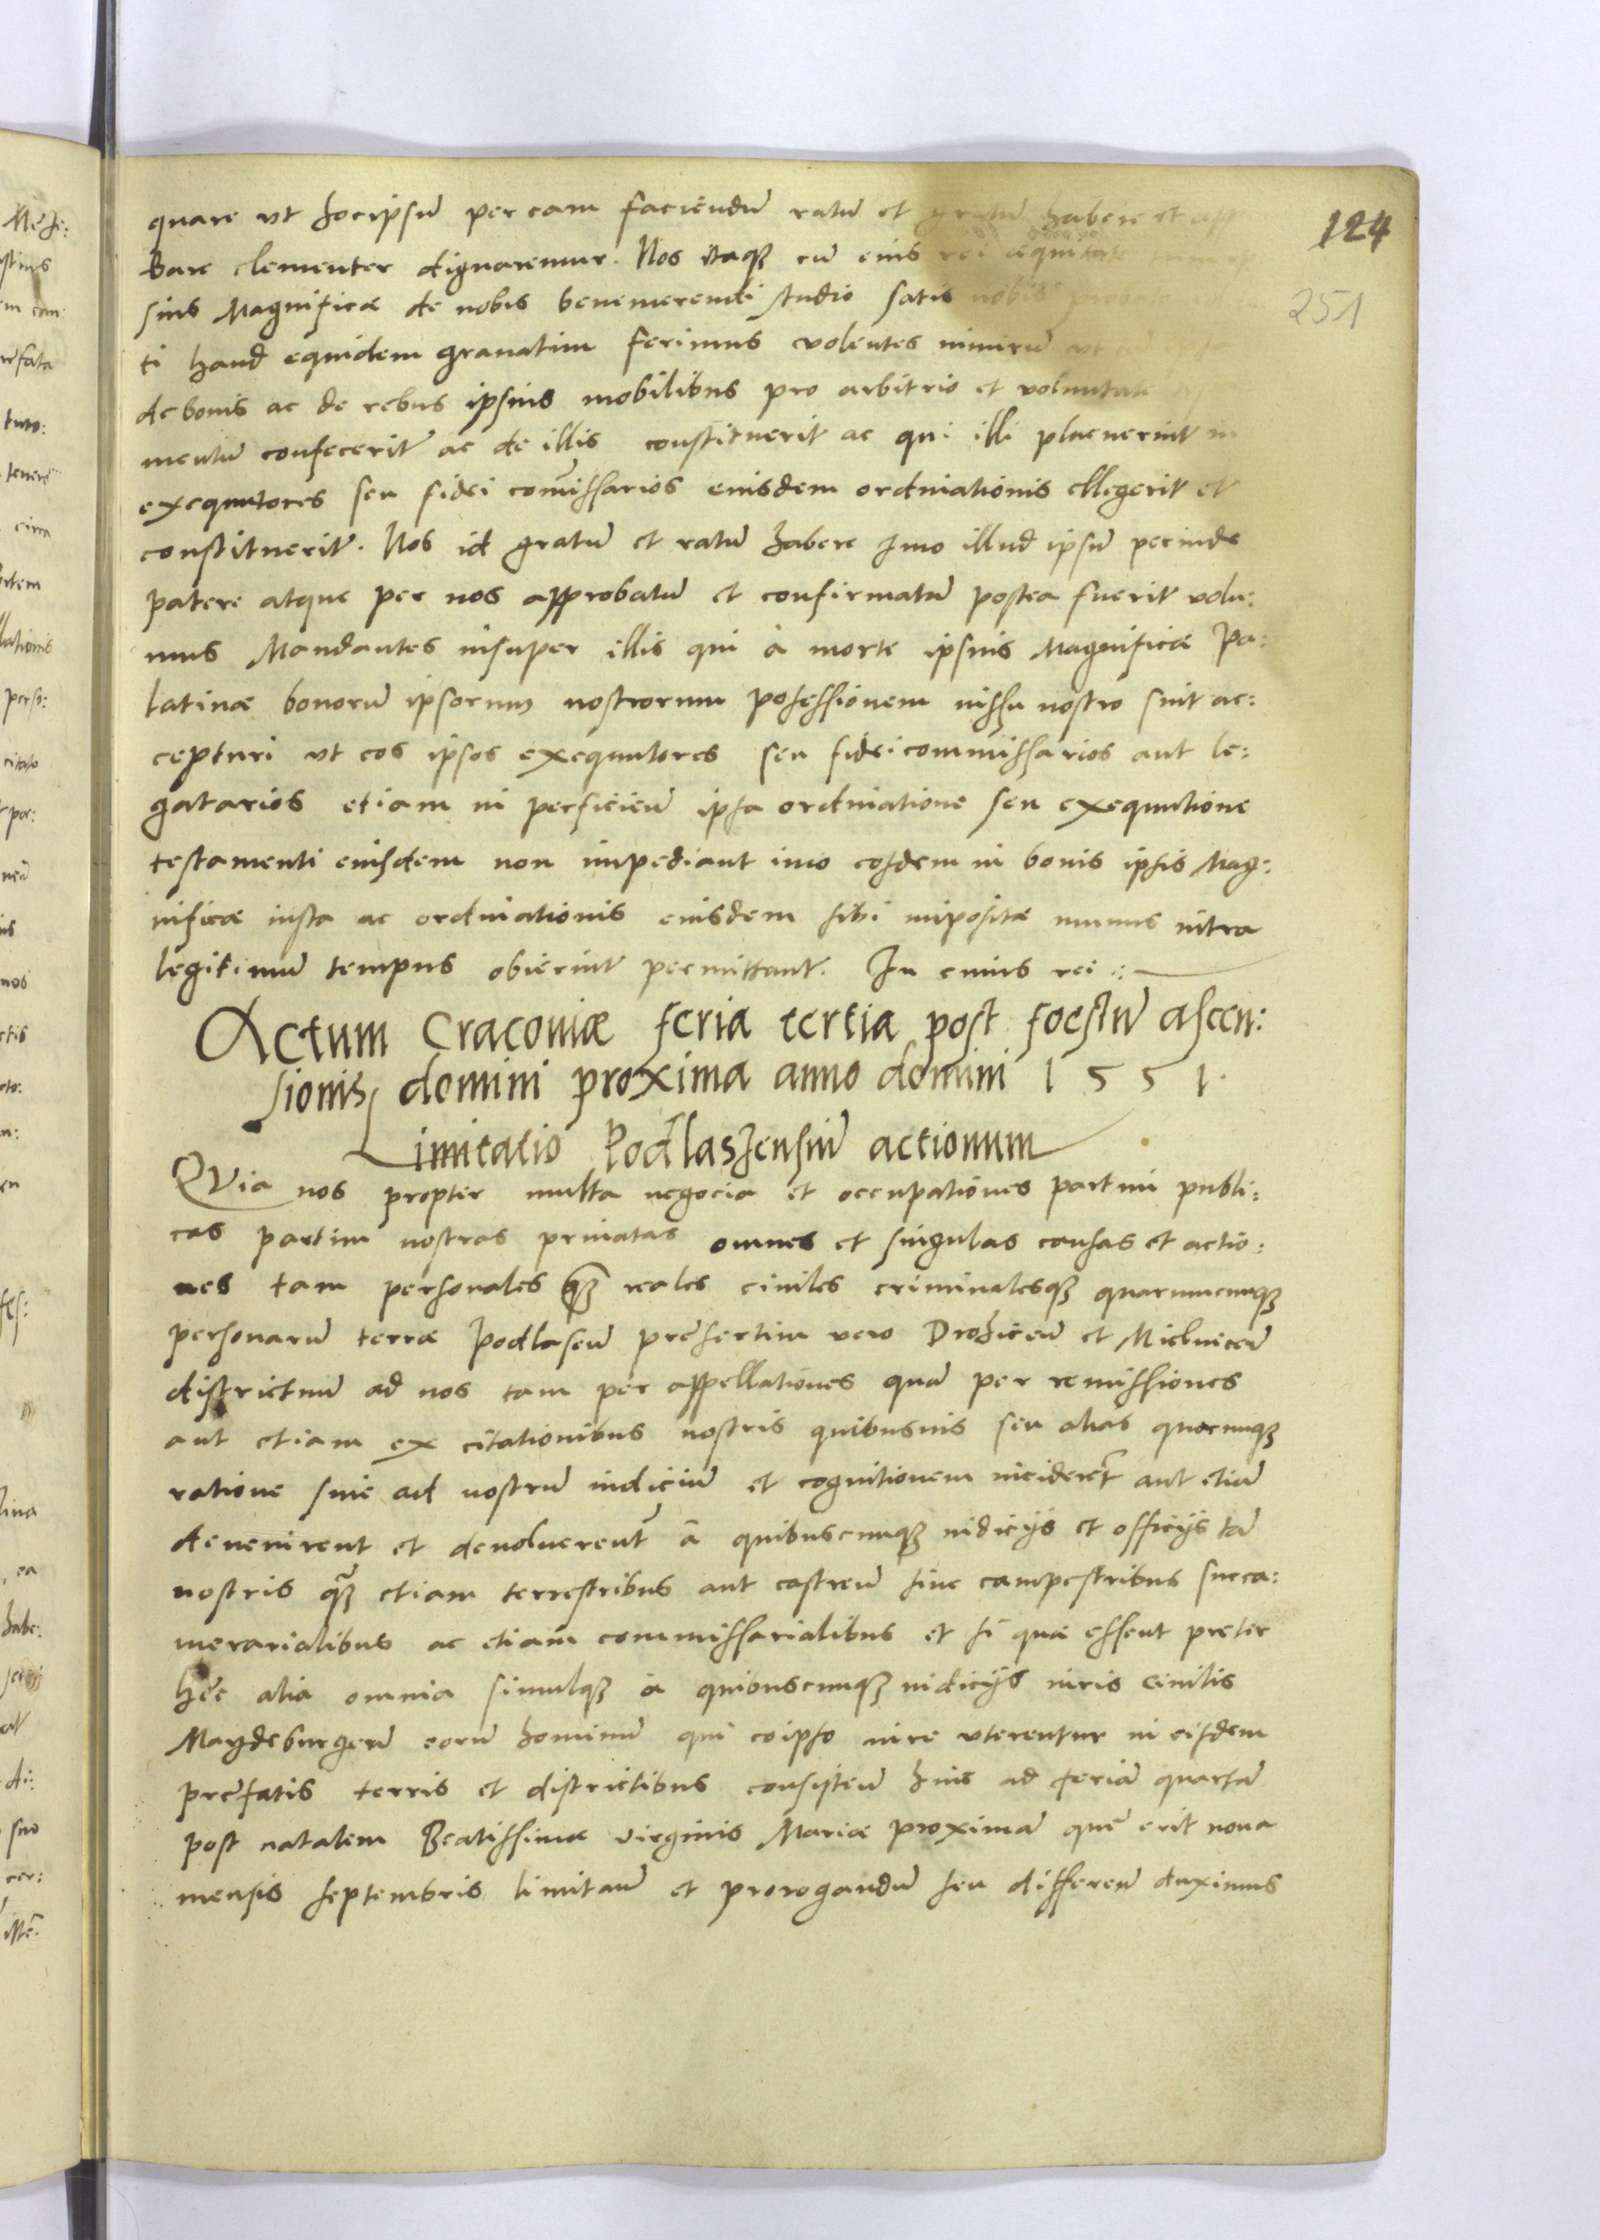 124
251
quare ut hocipsũ per eam faciẽndũ ratũ et gratũ habere et app
bare clementer dignaremur. Nos itaqꝫ cũ eius rei aequitate
sius Magnificæ de nobis benemerendi studio satis nobis
ti haud equidem grauatim ferimus volentes nimirũ ut
de bonis ac de rebus ipsius mobilibus pro arbitrio et voluntate
mentũ confecerit ac de illis constituerit ac qui illi placuerint in
exequutores seu fidei com̃issarios eiusdem ordinationis ellegerit et
constituerit. Nos id gratũ et ratũ habere Imo illud ipsũ perinde
patere atque per nos approbatũ et confirmatũ postea fuerit volu:
mus Mandantes insuper illis qui à morte ipsius Magnificæ Pa:
latinæ bonorũ ipsorum nostrorum possessionem iussu nostro sint ac:
cepturi ut eos ipsos exequutores seu fideicommissarios aut le:
gatarios etiam in perficiẽũ ipsa ordinatione seu exequutione
testamenti eiusdem non impediant imo eosdem in bonis ipsis Mag:
nificæ iusta ac ordinationis eiusdem sibi impositæ munus intra
legitimum tempus obierint permittant. In cuius rei ::
Actum Cracoviæ feria tertia post foestũ ascen:
sionis domini proxima anno domini 1551.
Limitatio Podlaszensiũ actionum
QVia nos propter multa negocia et occupationes partim publi:
cas partim nostras priuatas omnes et singulas causas et actio:
nes tam personales qꝫ reales ciuiles criminalesqꝫ quarumcumqꝫ
personarũ terræ Podlaseñ presertim vero Drohiceñ et Mielniceñ
districtuũ ad nos tam per appellationes quã per remissiones
aut etiam ex citationibus nostris quibusuis seu alias quacumqꝫ
ratione siue ad nostrũ iudiciũ et cognitionem inciderẽt aut etiã
deuenirent et deuoluerent à quibuscumqꝫ iudicijs et officijs tã
nostris qꝫ etiam terrestribus aut castreñ siue campestribus succa:
merarialibus ac etiam commissarialibus et si quæ essent preter
hec alia omnia simulqꝫ à quibuscumqꝫ iudicijs iuris Ciuilis
Maydeburgeñ eorũ hominũ qui eoipso iure uterentur in eisdem
prefatis terris et districtibus consisteñ hinc ad feriã quartã
post natalem Beatissimæ virginis Mariæ proximã que erit nona
mensis septembris limitañ et prorogandũ seu differeñ duximus